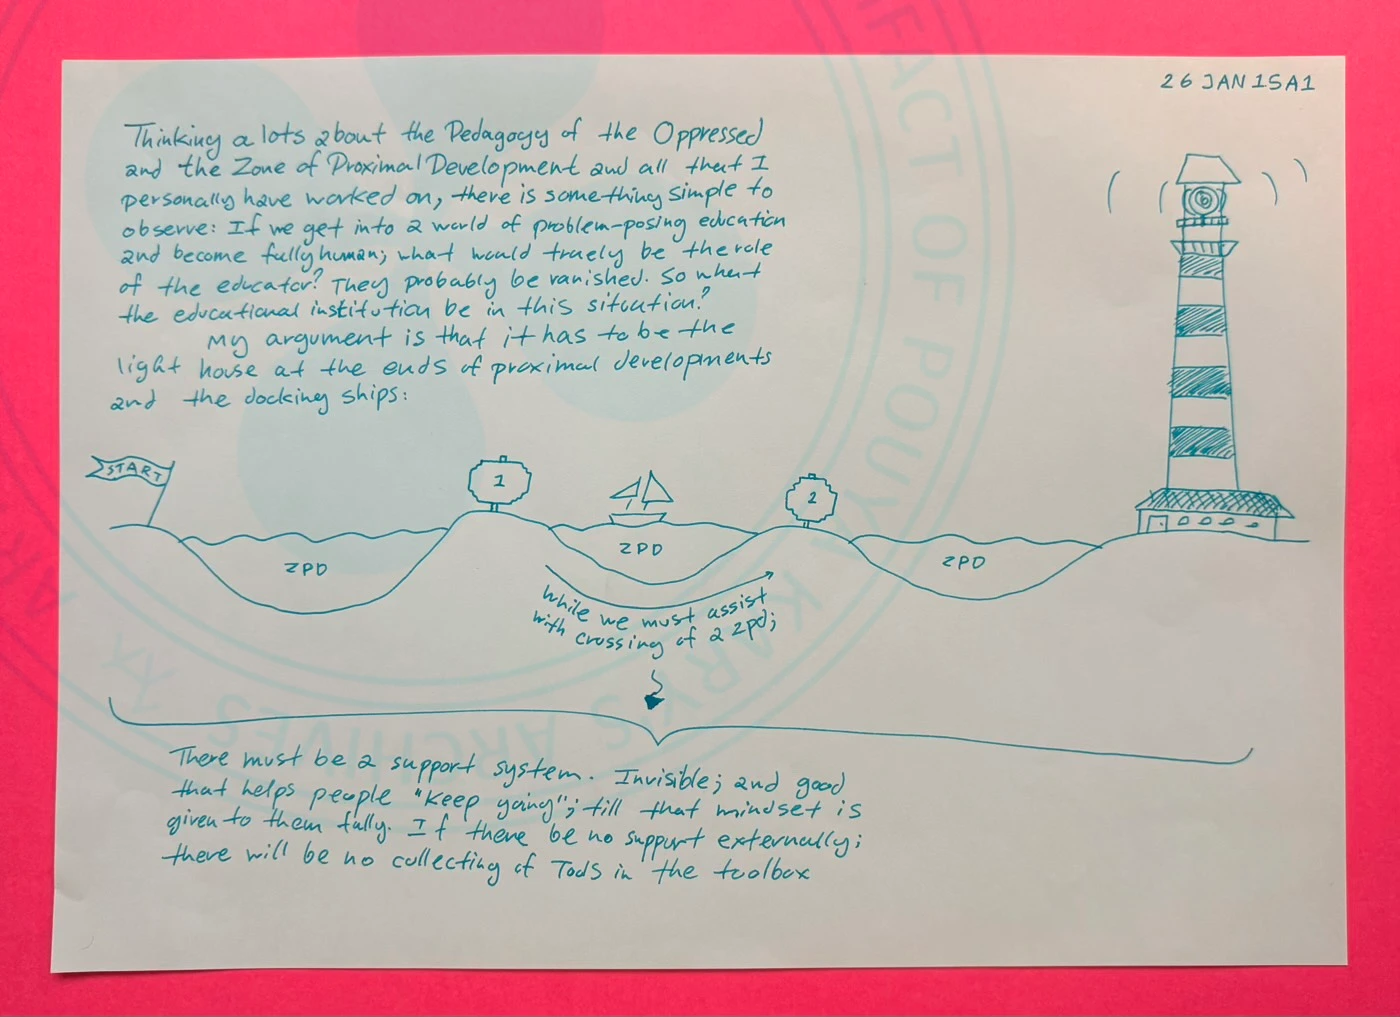 26 JAN 1SA1
Thinking a lots about the Pedagogy of the Oppressed
and the Zone of Proximal Development and all that I
personally have worked on, there is something simple to
observe: If we get into a world of problem-posing education
and become fully human; what would truely be the role
of the educator? They probably be vanished. So what
the educational institution be in this situation?
My argument is that it has to be the
light house at the ends of proximal developments
and the docking ships:
START
1
2
ZPD
ZPD
ZPD
While we must assist
with crossing of a zpd;
There must be a support system. Invisible; and good
that helps people "Keep going"; till that mindset is
given to them fully. If there be no support externally;
there will be no collecting of Tools in the toolbox